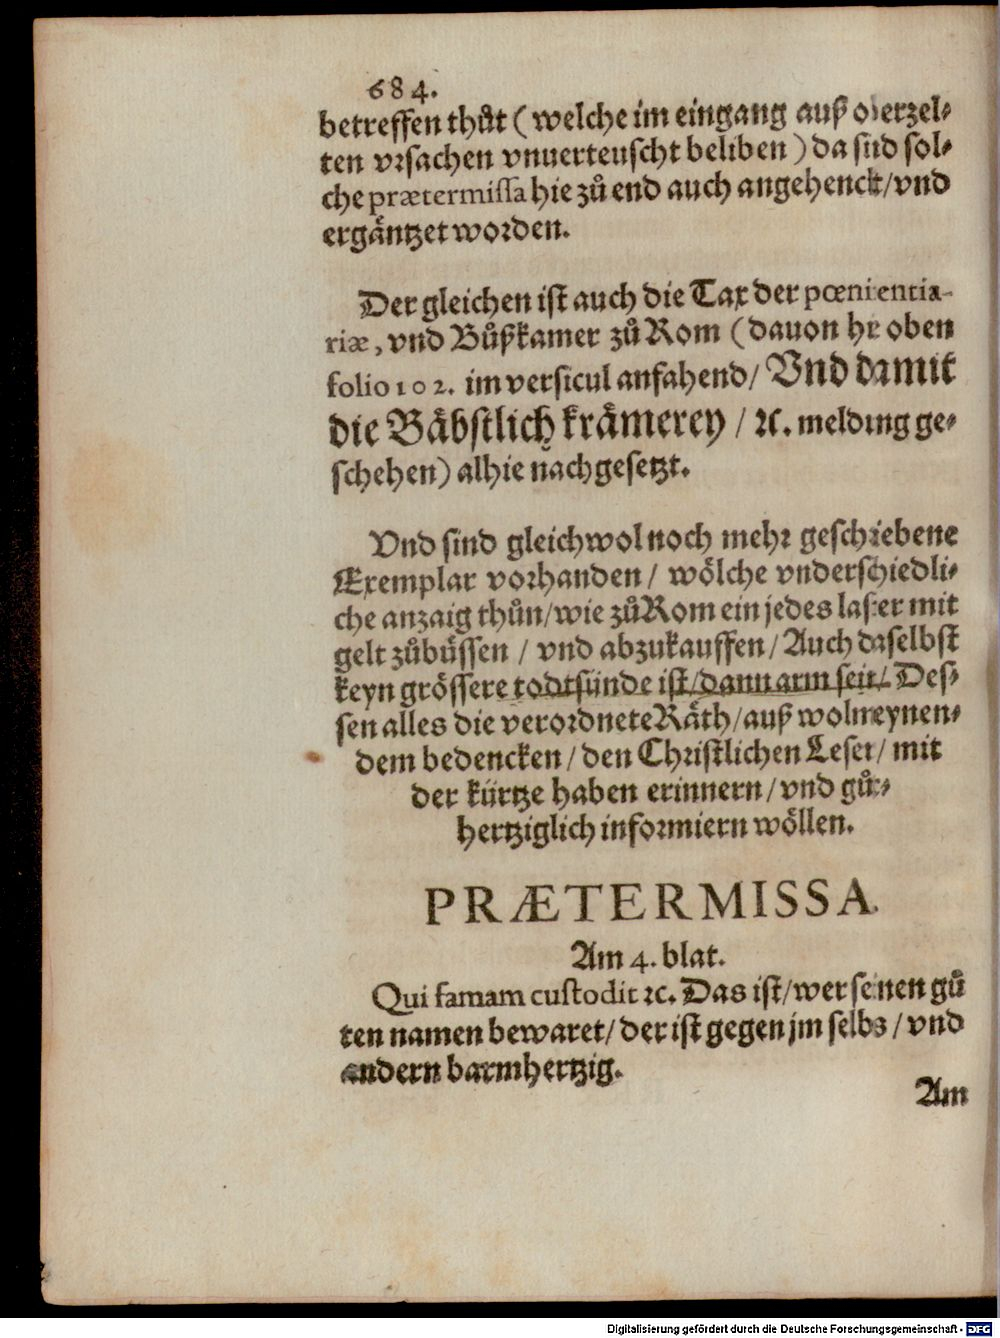 684.
betreffen thůt (welche im eingang auß oberzel⸗
ten vrsachen vnuerteuscht beliben) da sind sol⸗
che prætermissa hie zů end auch angehenckt/vnd
ergäntzet worden.
Der gleichen ist auch die Tax der pœnitentia-
riæ, vnd Bůßkamer zů Rom (dauon hie oben
folio 102. im versicul anfahend/ Vnd damit
die Bäbstlich krämerey / ꝛc. meldung ge⸗
schehen) alhie nachgesetzt.
Vnd sind gleichwol noch mehr geschriebene
Exemplar vorhanden / wölche vnderschiedli⸗
che anzaig thůn/wie zů Rom ein jedes laster mit
gelt zůbüssen / vnd abzukauffen/ Auch daselbst
keyn grössere todtsünde ist/dann arm sein/ Des⸗
sen alles die verordnete Räth/auß wolmeynen⸗
dem bedencken/den Christlichen Leser/ mit
der kürtze haben erinnern/vnd gůt⸗
hertziglich informiern wöllen.
PRÆTERMISSA.
Am 4. blat.
Qui famam custodit ꝛc. Das ist/wer seinen gů
ten namen bewaret/ der ist gegen jm selbs / vnd
andern barmhertzig.
Am
Digitalisierung gefördert durch die Deutsche Forschungsgemeinschaft - DFG